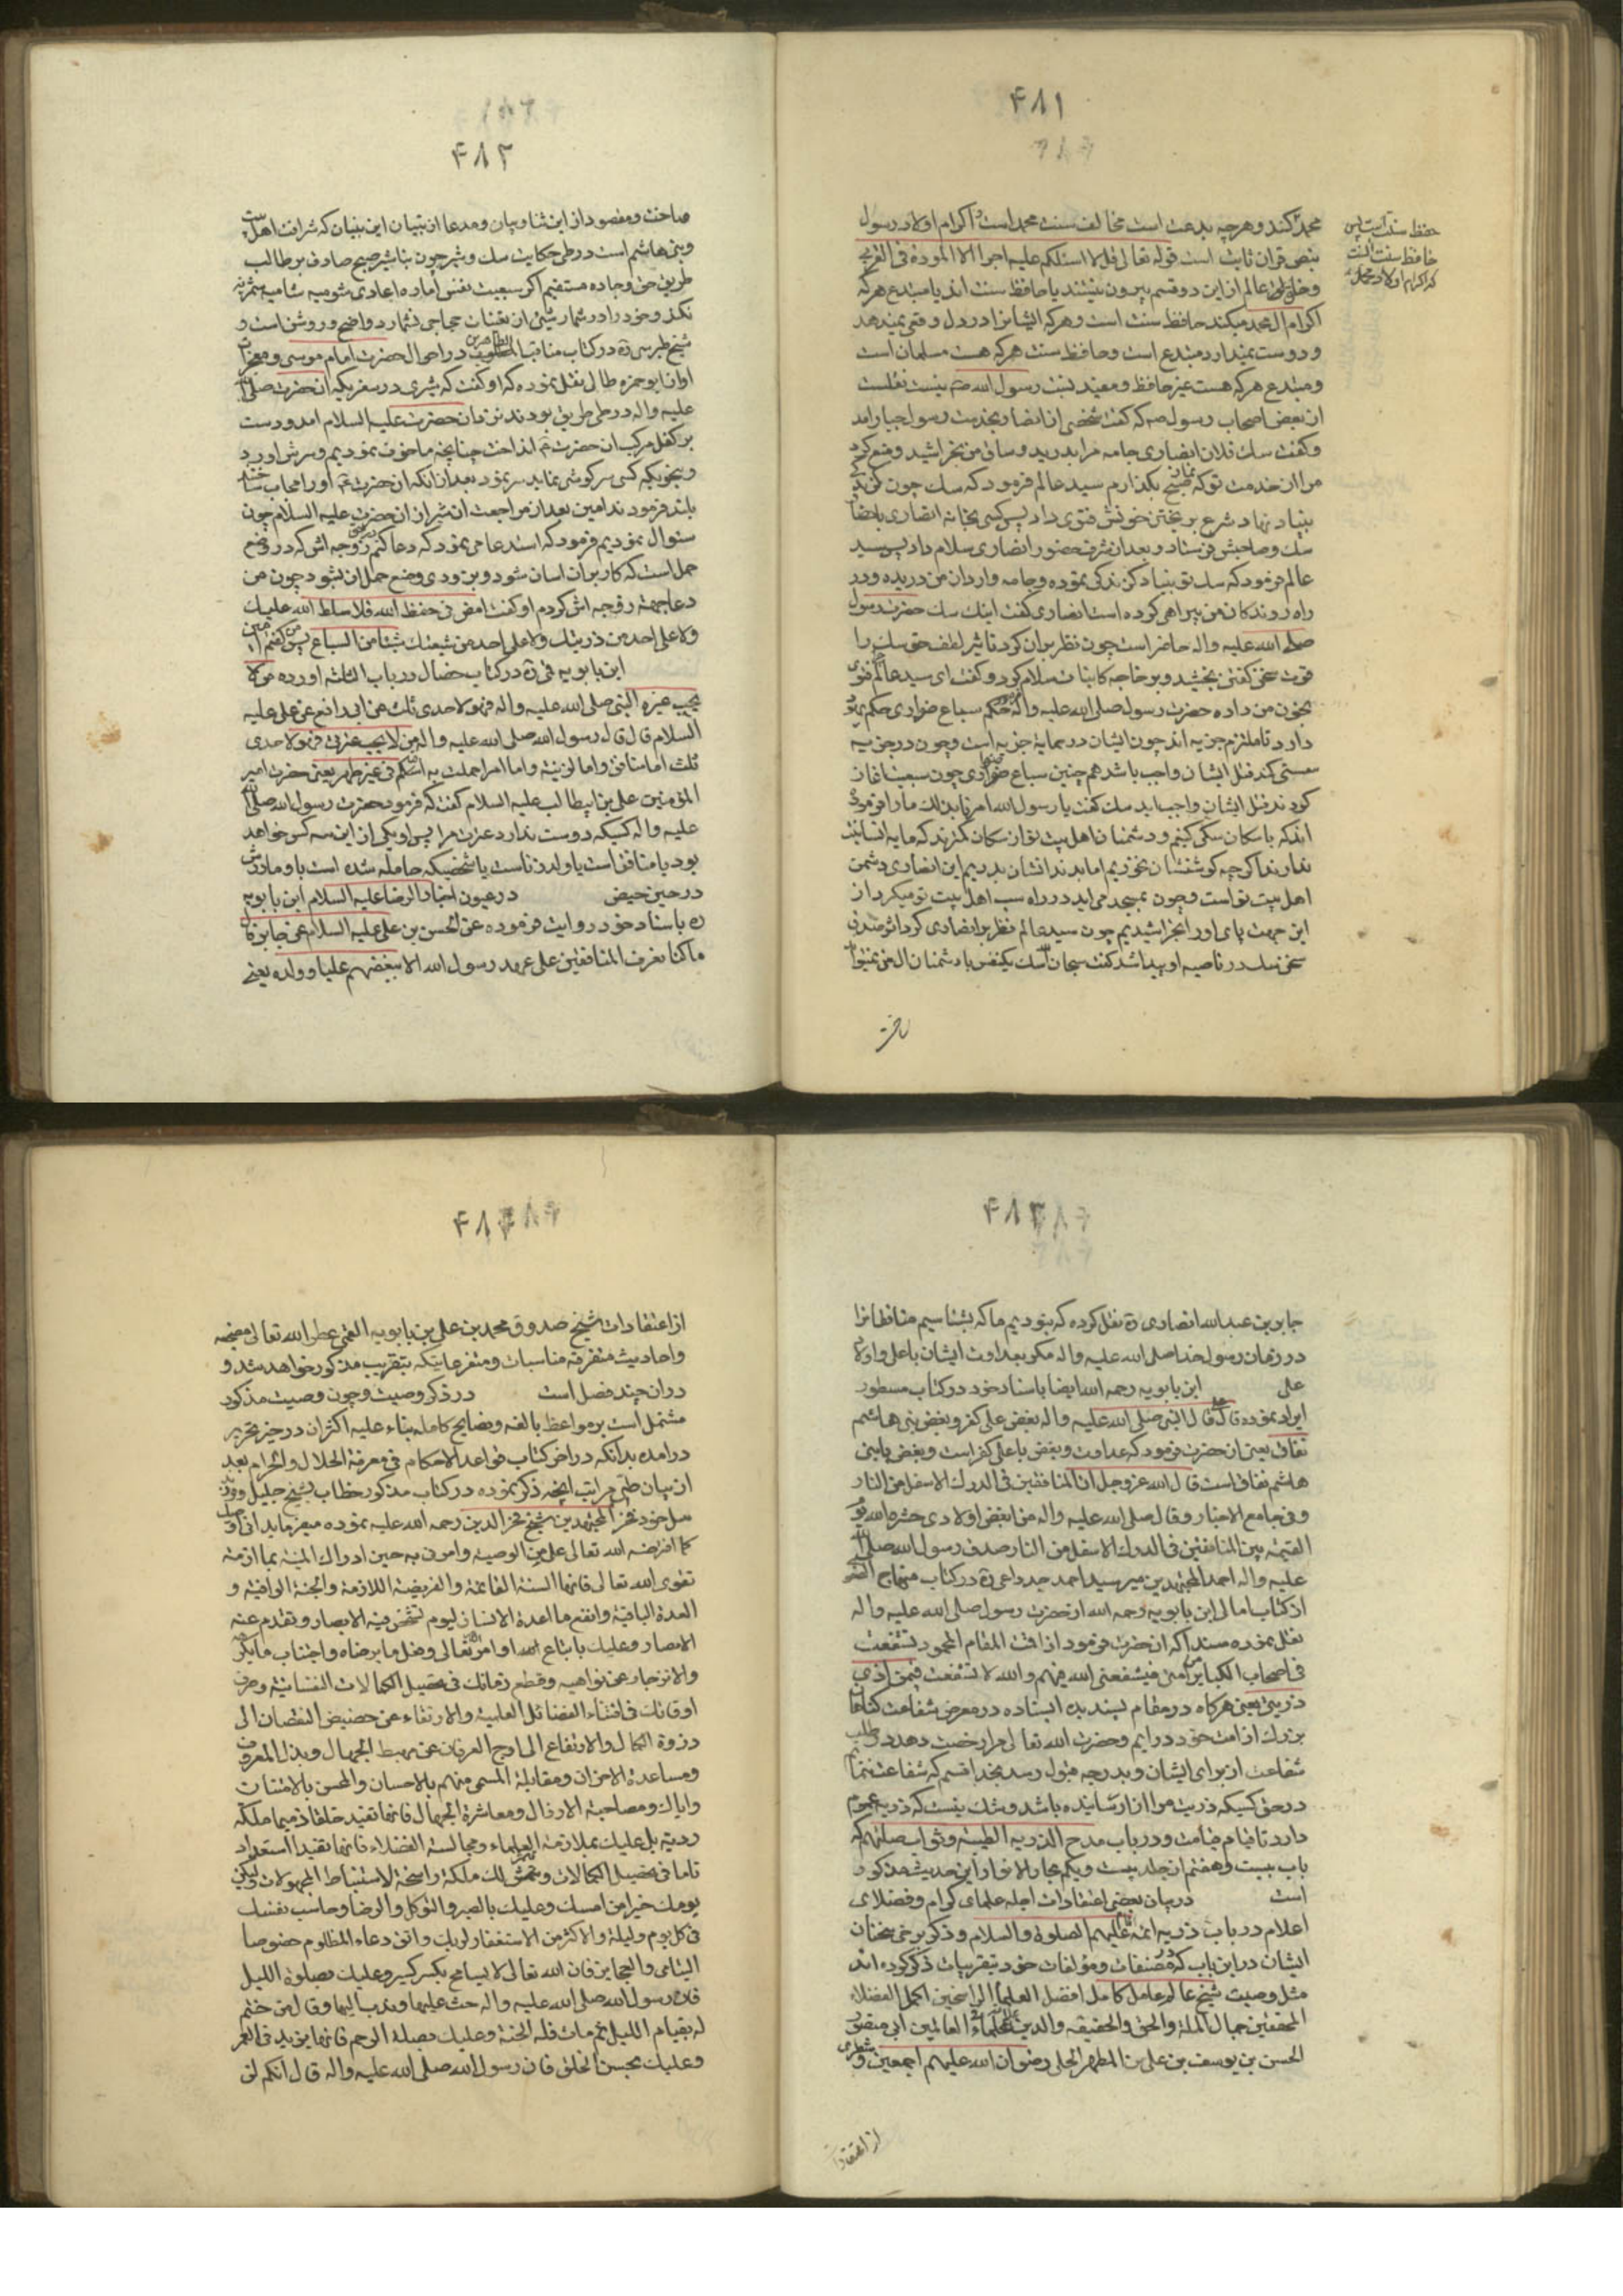 ۴۸۱
محمد کند و هرچه بدعت است مخالف سنت محمد است و اکرام اولاد رسول
بنص قران ثابت است قوله تعالی قل لا اسئلکم علیه اجرا الا المودة فی القربی
و خلق عالم از این دو قسم بیرون نیستند یا حافظ سنت اند یا مبتدع هرکه
اکرام ال محمد میکند حافظ سنت است و هرکه ایشانرا در دل وقتی نمیدهد
و دوست نمیدارد مبتدع است و حافظ سنت هرکه هست مسلمان است
و مبتدع هرکه هست غیر حافظ و معید سنت رسول الله نیست نقلست
از بعض اصحاب رسول که گفت شخصی از انصار بخدمت رسول جبار امد
و گفت سک فلان انصاری جامه مرا بدرید و ساق من بخراشید و منع کرد
مرا از خدمت تو که نماز صبح بکذارم سید عالم فرمود که سک چون
بنیاد نهاد شرع بریختن خونش فتوی داد پس کسی بخانه انصاری باحضار
سک و صاحبش فرستاد و بعد از شرف حضور انصاری سلام داد پس سید
عالم فرمود که سک تو بنیاد کزندکی نموده و جامه واردان من دریده و در
راه روندکان من بیراهی کرده است انصاری گفت اینک سک حضرت رسول
صلی الله علیه واله حاضر است چون نظر بران کرد تاثیر لطف حق سک را
قوت سخن گفتن بخشید و بر خاجه کاینات سلام کرد و گفت ای سید عالم فتوی
بخون من داده حضرت رسول صلی الله علیه واله حکم سباع ضواری حکم یهود
دارد تا ملتزم جزیه اند چون ایشان در حمایة جزیه است و چون در جزیه
سستی کند قتل ایشان واجب باشد همچنین سباع ضواری چون
کردند قتل ایشان واجب اید سک گفت یا رسول الله امر ما را فرموده
اند که با سکان سکی کنیم و دشمنان اهل بیت تو از سکان کمترند که مایه انسانیت
ندارند اکر چه کوشتشان نخوریم اما بدندانشان بدریم این انصاری دشمن
اهل بیت تو است و چون بمسجد می اید در راه سب اهل بیت تو میکرد از
این جهت پای او را بخراشیدیم چون سید عالم نظر بر انصاری کرد اثر صدق
سخن سک در ناصیه او پیدا شد گفت سبحان الله سک یکنفس با دشمنان ال من نمیتواند
حفظ سنت است پس
حافظ سنت است
که اکرام اولاد محمد
۴۸۲
ساخت و مقصود از این ثنا و بیان و مدعا از تبیان این بنیان که شرافت اهل بیت
و بنی هاشم است در طی حکایت سک و شیر چون بتاشیر صبح صادق بر طالب
طریق حق و جاده مستقیم اکر سبعیت نفس اماره اعادی شومیه شامیه
نکند و خود را در شمار حجاجی نشمارد واضح و روشن است و
شیخ طبرسی ره در کتاب مناقب الطاهرین در احوال حضرت امام موسی و معجزات
او از ابو حمزه بطائنی نقل نموده که او گفت که شیری در سفریکه ان حضرت صلی الله
علیه واله در طی طریق بودند نزد ان حضرت علیه السلام امد و دست
بر کفل مرکب ان حضرت انداخت چنانچه ما خوف نمودیم و سرش اورد
و بنحویکه کسی سرکوشی نماید سر نمود بعد از انکه ان حضرت او را مجاب ساختند
بلند فرمودند امین بعد از مراجعت ان شیر از ان حضرت علیه السلام چون
سئوال نمودیم فرمود که استدعا می نمود که دعا کنم زوجه اش که در وضع
حمل است که کار بر ان اسان شود و بزودی وضع حمل ان بشود چون من
دعا جهته زوجه اش کردم او گفت امض فی حفظ الله فلا سلط الله علیک
ولا علی احد من ذریتک ولا علی احد من شیعتک شیئا من السباع پس من گفتم امین
ابن بابویه قمی ره در کتاب خصال در باب الثلثه اورده من لا
یحب عترة النبی صلی الله علیه واله فهو لاحدی ثلث عن ابی رافع عن علی علیه
السلام قال قال رسول الله صلی الله علیه واله من لا یحب عترتی فهو لاحدی
ثلث اما منافق واما لزنیة واما امرء حملت به امه فی غیر طهر یعنی حضرت امیر
المؤمنین علی بن ابیطالب علیه السلام گفت که فرمود حضرت رسول الله صلی الله
علیه واله کسیکه دوست ندارد عترت مرا پس او یکی از این سه کس خواهد
بود یا منافق است یا ولد زناست یا شخصیکه حامله شده است باو مادرش
در حین حیض در عیون اخبار الرضا علیه السلام ابن بابویه
ره باسناد خود روایت فرموده عن الحسن بن علی علیه السلام عن جابر قال
ما کنا نعرف المنافقین علی عهد رسول الله الا ببغضهم علیا و ولده یعنی
۴۸۳
جابر بن عبد الله انصاری ره نقل کرده که نبودیم ما که بشناسیم منافقانرا
در زمان رسول خدا صلی الله علیه واله مکر بعداوت ایشان با علی و اولاد
علی ابن بابویه رحمه الله ایضا باسناد خود در کتاب مسطور
ایراد نموده قال قال النبی صلی الله علیه واله بغض علی کفر و بغض بنی هاشم
نفاق یعنی ان حضرت فرمود که عداوت و بغض با علی کفر است و بغض با بنی
هاشم نفاق است قال الله عز وجل ان المنافقین فی الدرک الاسفل من النار
و فی جامع الاخبار و قال صلی الله علیه واله من ابغض اولادی حشره الله یوم
القیمة بین المنافقین فی الدرک الاسفل من النار صدق رسول الله صلی الله
علیه واله احمد المجتهدین میر سید احمد ره در کتاب منهاج
از کتاب امالی ابن بابویه رحمه الله از حضرت رسول صلی الله علیه واله
نقل نموده مسندا که ان حضرت فرمود اذا قمت المقام المحمود تشفعت
فی اصحاب الکبایر من امتی فیشفعنی الله فیهم والله لا تشفعت فیمن اذی
ذریتی یعنی هرکاه در مقام پسندیده ایستاده در معرض شفاعت کناهان
بزرک از امت خود درایم و حضرت الله تعالی مرا رخصت دهد و طلب
شفاعت از برای ایشان و بدرجه قبول رسد بخدا قسم که شفاعت ننمایم
در حق کسیکه ذریت مرا ازار رسانیده باشد و شک نیست که ذریه عموم
دارد تا قیام قیامت و در باب مدح الذریه الطیبه و ثواب صلتهم که
باب بیست و هفتم از جلد بیست و یکم بحار الانوار این حدیث مذکور
است در بیان بعضی اعتقادات اجله علمای کرام و فضلای
اعلام در باب ذریه ائمه علیهم الصلوة والسلام و ذکر برخی سخنان
ایشان در این باب که در مصنفات و مؤلفات خود بتقریبات ذکر کرده اند
مثل وصیت شیخ عالم عامل کامل افضل العلماء الراسخین اکمل الفضلاء
المحققین جمال الملة والحق والحقیقه والدین علامة العلماء فی العالمین ابی منصور
الحسن بن یوسف بن علی بن المطهر الحلی رضوان الله علیهم اجمعین و شطری
از اعتقادات
۴۸۴
از اعتقادات شیخ صدوق محمد بن علی بن بابویه القمی عطر الله تعالی مضجعه
و احادیث متفرقه مناسبات و متفرعاتیکه بتقریب مذکور خواهد شد و
دران چند فصل است در ذکر وصیت و چون وصیت مذکور
مشتمل است بر مواعظ بالغه و نصایح کامله بناء علیه اکثران در حیز تحریر
درامده بدانکه در اخر کتاب قواعد الاحکام فی معرفة الحلال والحرام بعد
از بیان طی مراتب انچه ذکر نموده در کتاب مذکور خطاب بشیخ جلیل و ولد
خود فخر المجتهدین شیخ فخر الدین رحمه الله علیه نموده میفرماید انی اوصیک
کما افترضه الله تعالی علی من الوصیة وامرنی به حین ادراک المنیة بملازمة
تقوی الله تعالی فانها السنة القائمة والفریضة اللازمة والجنة الواقیة و
العدة الباقیة وانفع ما اعده الانسان لیوم تشخص فیه الابصار ویعدم عنه
الانصار وعلیک باتباع اوامر الله تعالی وفعل ما یرضاه واجتناب ما یکرهه
والانزجار عن نواهیه وقطع زمانک فی تحصیل الکمالات النفسانیة وصرف
اوقاتک فی اقتناء الفضائل العلمیة والارتقاء عن حضیض النقصان الی
ذروة الکمال والارتفاع الی اوج العرفان عن مهبط الجهال وبذل المعروف
ومساعدة الاخوان ومقابلة المسیئ منهم بالاحسان والمحسن بالامتنان
وایاک ومصاحبة الارذال ومعاشرة الجهال فانها تفید خلقا ذمیما وملکة
ردیة بل علیک بملازمة العلماء ومجالسة الفضلاء فانها تفید استعداد
تاما فی تحصیل الکمالات وتثمر لک ملکة راسخة لاستنباط المجهولات ولیکن
یومک خیرا من امسک وعلیک بالصبر والتوکل والرضا وحاسب نفسک
فی کل یوم ولیلة واکثر من الاستغفار لربک واتق دعاء المظلوم خصوصا
الیتامی والعجایز فان الله تعالی لا یسامح بکسر کسیر وعلیک بصلوة اللیل
فان رسول الله صلی الله علیه واله حث علیها وندب الیها وقال من ختم
له بقیام اللیل ثم مات فله الجنة وعلیک بصلة الرحم فانها یزید فی العمر
وعلیک بحسن الخلق فان رسول الله صلی الله علیه واله قال انکم لن